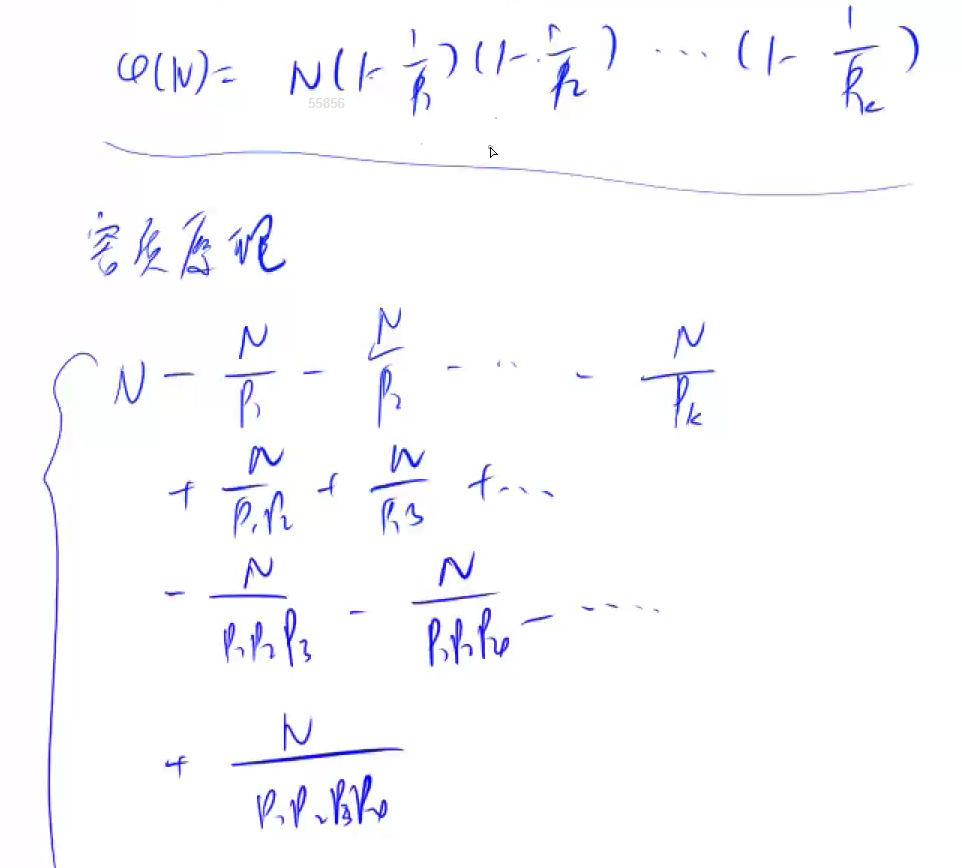 φ(N) = N(1-1/P₁)(1-1/P₂) ... (1-1/Pₖ)
55856
容质原理
N - N/P₁ - N/P₂ - ... - N/Pₖ
+ N/P₁P₂ + N/P₁3 + ...
- N/P₁P₂P₃ - N/P₁P₂P₄ - ....
+ N/P₁P₂P₃P₄